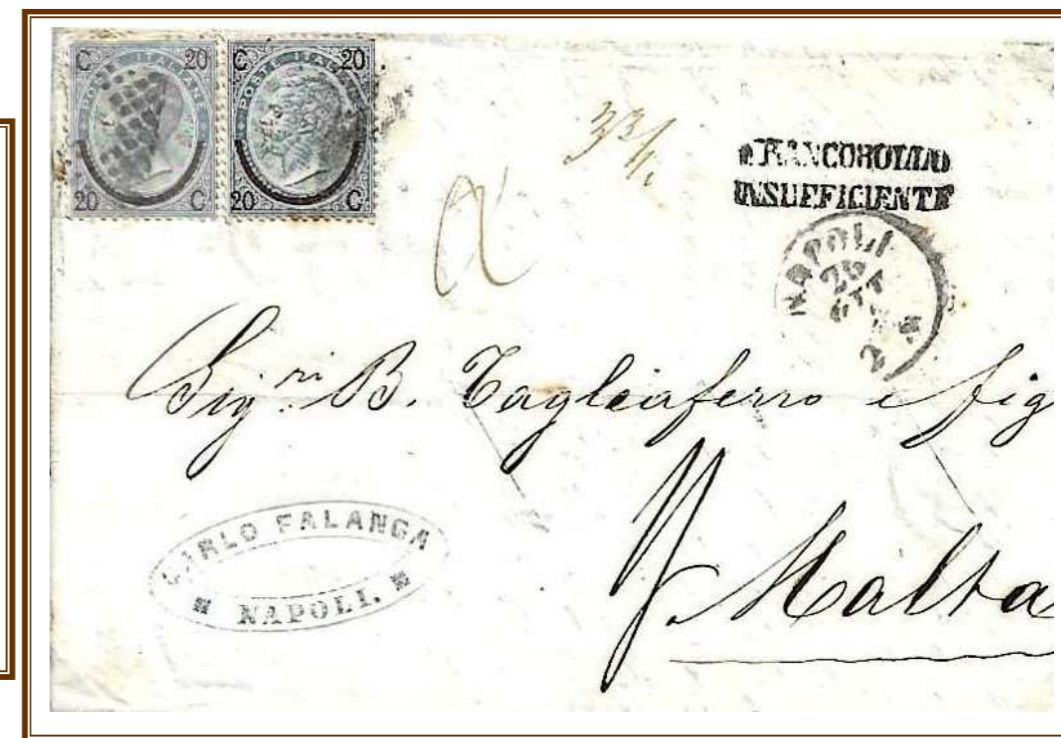 C 20 C 20
POSTE ITALIANE POSTE ITALIANE
20 C 20 C
FRANCOBOLLO
INSUFFICIENTE
NAPOLI
2 M
Sig.ri B. Tagliaferro e fig
Malta
CARLO FALANGA
NAPOLI.